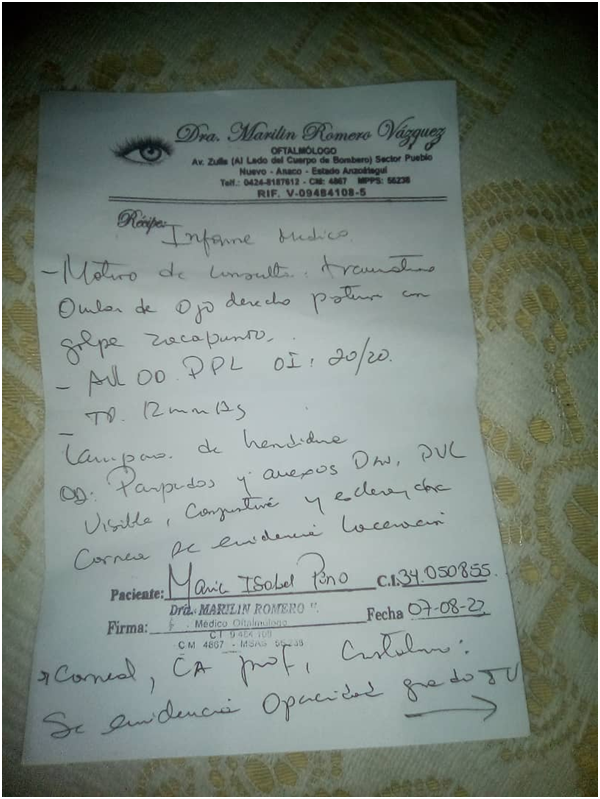 Dra. Marilin Romero Vázquez
OFTALMÓLOGO
Av. Zulia (Al Lado del Cuerpo de Bombero) Sector Pueblo
Nuevo - Anaco - Estado Anzoátegui
Telf.: 0424-8187612 - CM: 4867 MPPS: 56238
RIF. V-09484108-5
Récipe:
Informe Medico
- Motivo de consulta: traumatismo
Ocular de ojo derecho posterior con
golpe sacapunto.
- AVL OD: PPL OI: 20/20.
- TO. 12 mmHg
Lampara de hendidura
OD: Parpados y anexos DLN, PVL
Visible, Conjuntiva y esclera
Cornea se evidencia laceracion
Paciente: Maria Isobel Pino C.I. 34.050855.
Dra. MARILIN ROMERO V.
Firma: Médico Oftalmólogo Fecha 07-08-22
CM 4867 - MSAS 56.238
* Corneal, CA prof, Cristalino:
Se evidencia Opacidad grado IV